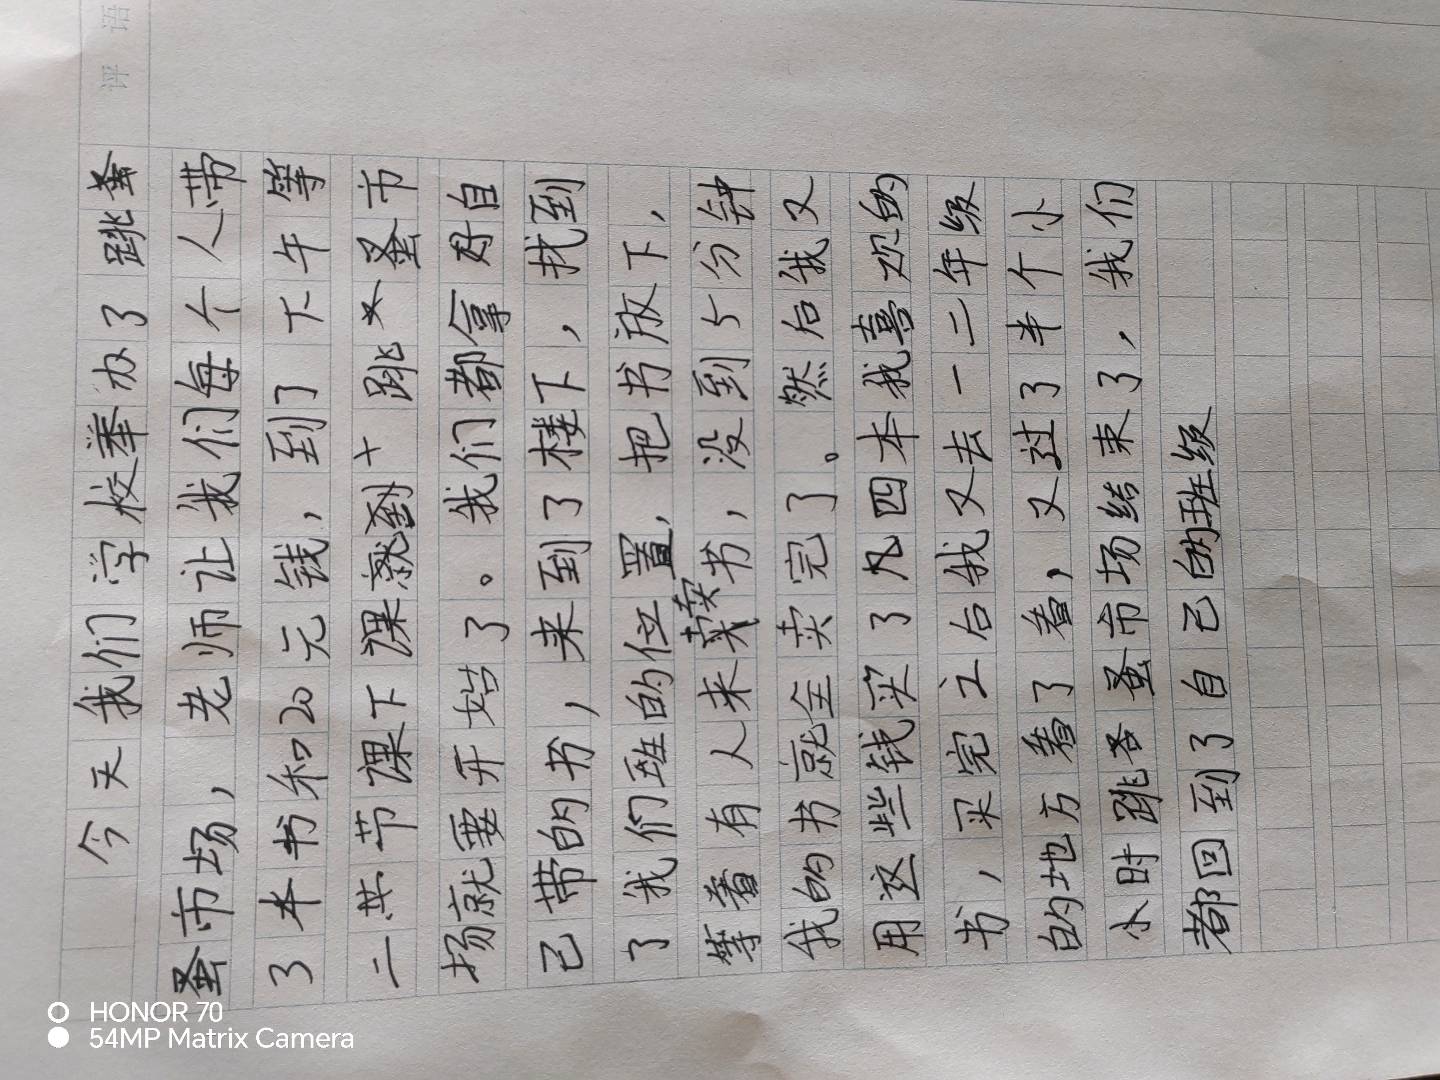 评语
今天我们学校举办了跳蚤
蚤市场，老师让我们每个人带
3本书和20元钱，到了下午等
二共节课下课感到十跳 蚤市
场就要开始了。我们都拿好自
己带的书，来到了楼下，找到
了我们班的位置，把书放下，
等着有人来卖书，没到5分钟
我的书就全卖完了。然后我又
用这些钱买了凡四本我喜欢的
书，买完之后我又去一二年级
的地方看了看，又过了半个小
小时跳蚤市场结束了，我们
都回到了自己的班级
HONOR 70
54MP Matrix Camera